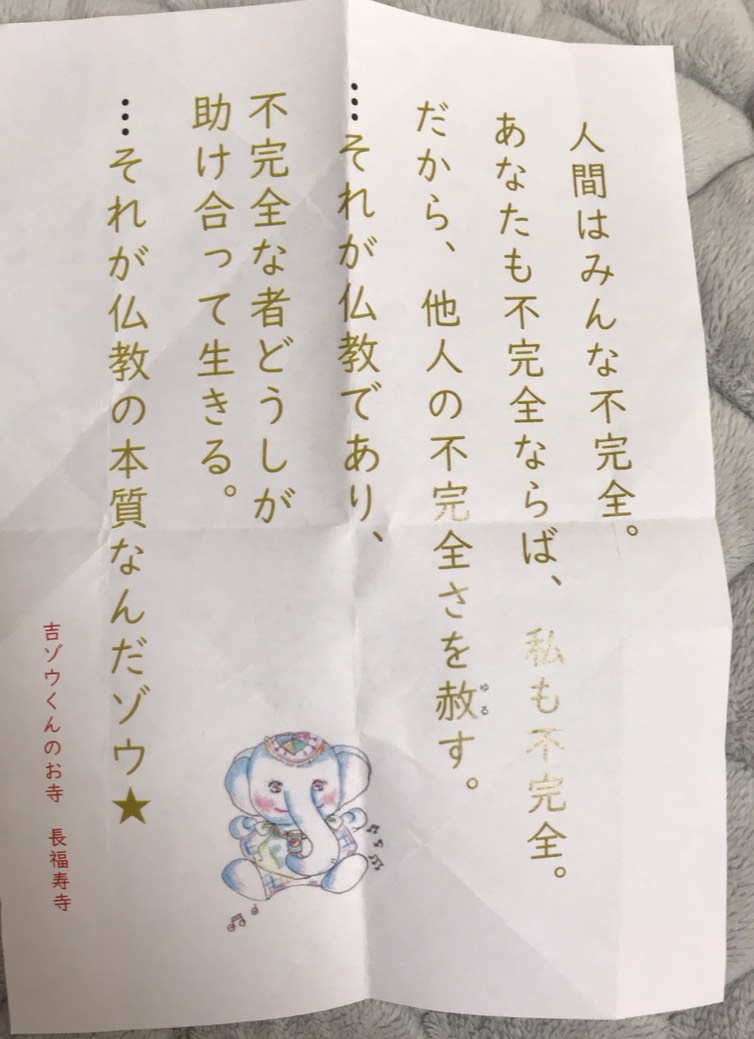 人間はみんな不完全。
あなたも不完全ならば、私も不完全。
だから、他人の不完全さを赦す。
ゆる
…それが仏教であり、
不完全な者どうしが
助け合って生きる。
…それが仏教の本質なんだゾウ★
吉ゾウくんのお寺　長福寿寺